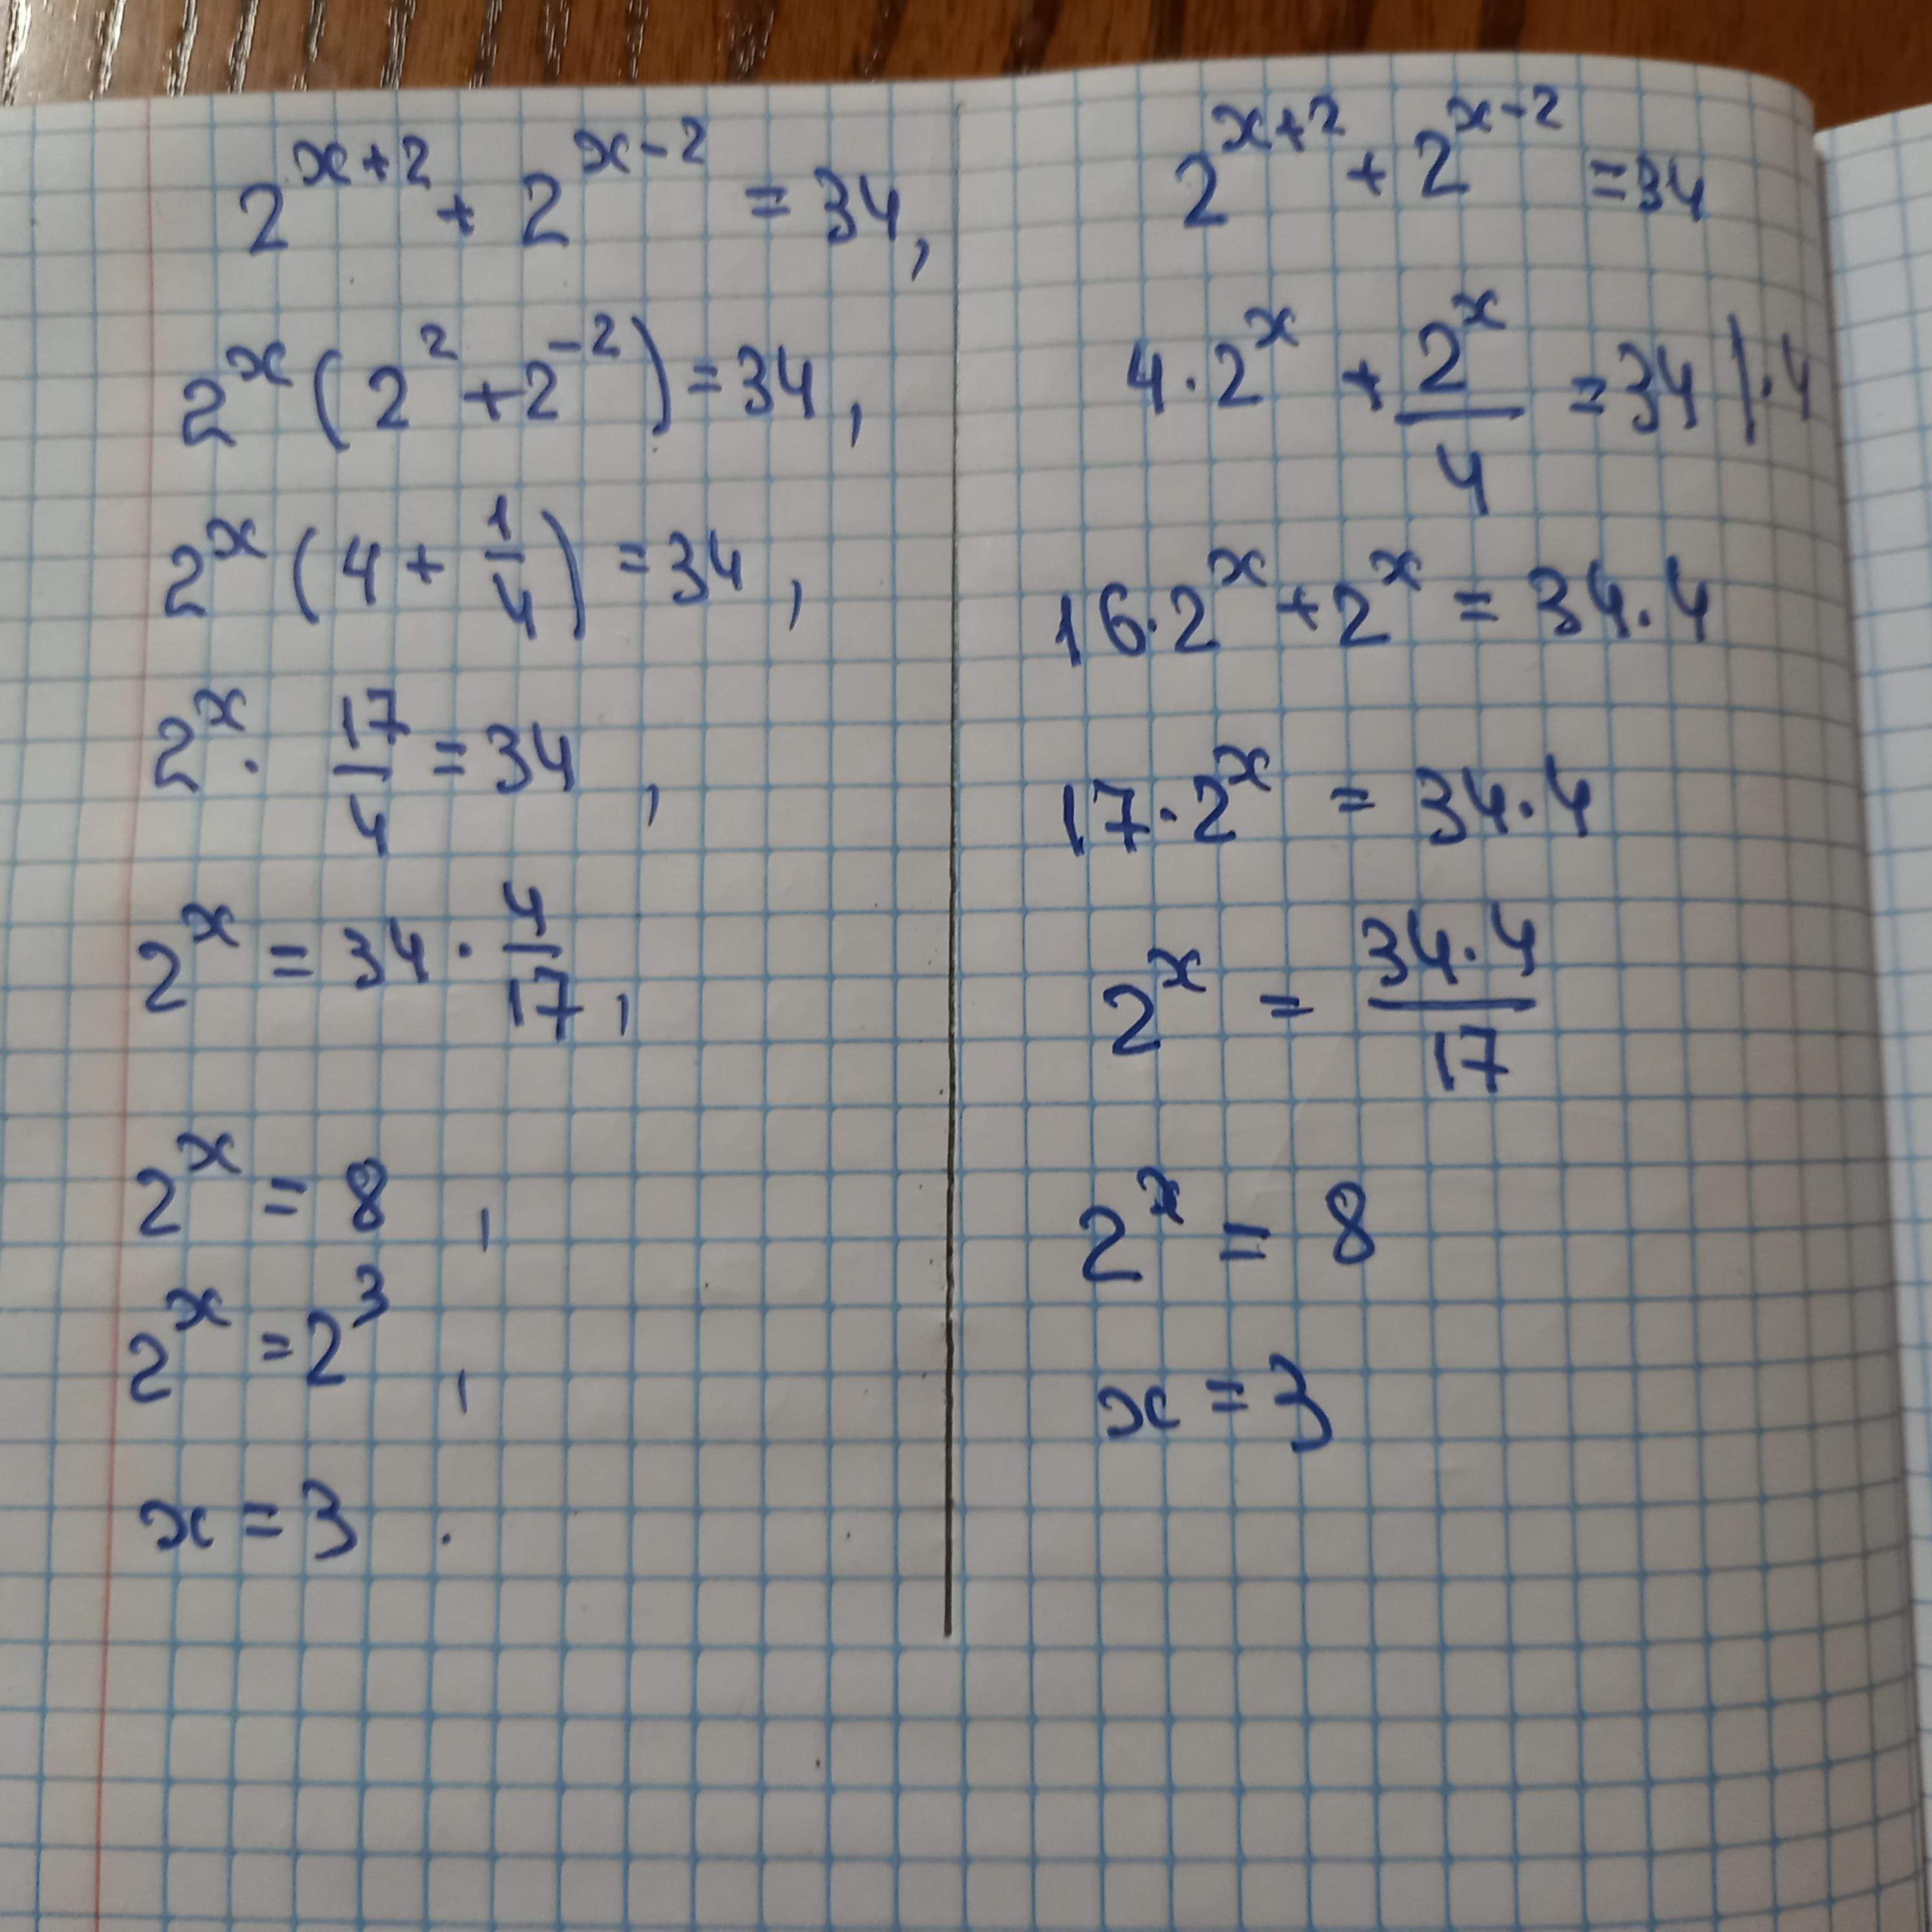 2^{x+2} + 2^{x-2} = 34,
2^x (2^2 + 2^{-2}) = 34,
2^x (4 + \frac{1}{4}) = 34,
2^x · \frac{17}{4} = 34,
2^x = 34 · \frac{4}{17},
2^x = 8,
2^x = 2^3,
x = 3.
2^{x+2} + 2^{x-2} = 34
4 · 2^x + \frac{2^x}{4} = 34 | · 4
16 · 2^x + 2^x = 34 · 4
17 · 2^x = 34 · 4
2^x = \frac{34 · 4}{17}
2^x = 8
x = 3